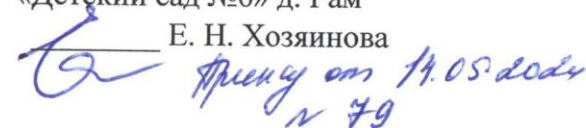 «Детский сад №6» д. Гам
Е. Н. Хозяинова
Приказ от 14.05.2024
№ 79